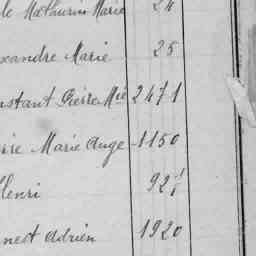 le Mathurin Marie 24
exandre Marie 25
nstant Pierre Mie 2471
rre Marie Ange 1150
Henri 921
nest Adrien 1920